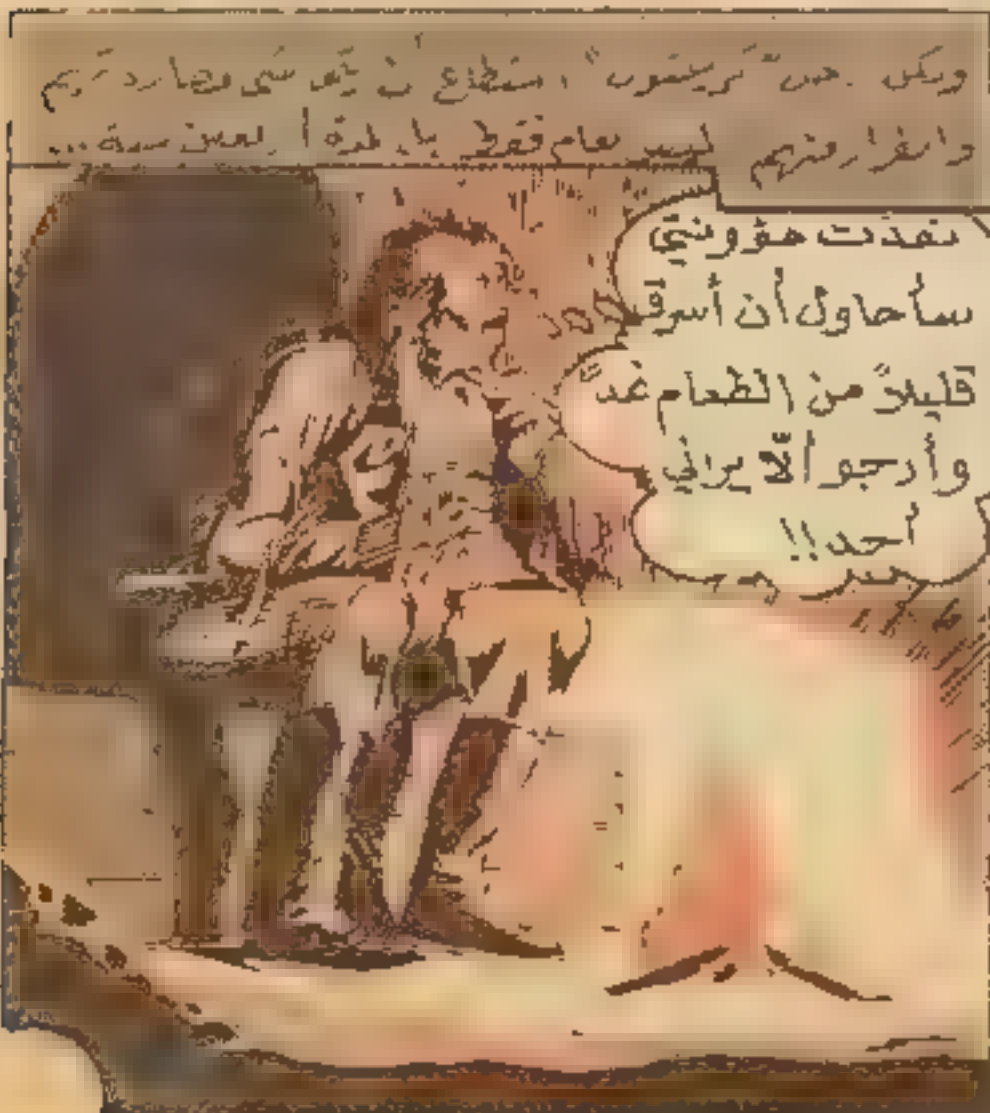 ولكن . من "تريتون" ، استطاع أن
وانفرادهم ليس لعام فقط بل لمدة أربعين سنة ...
نفذت مؤونتي
سأحاول أن أسرق
قليلاً من الطعام غداً
وأرجو ألّا يراني
أحد !!